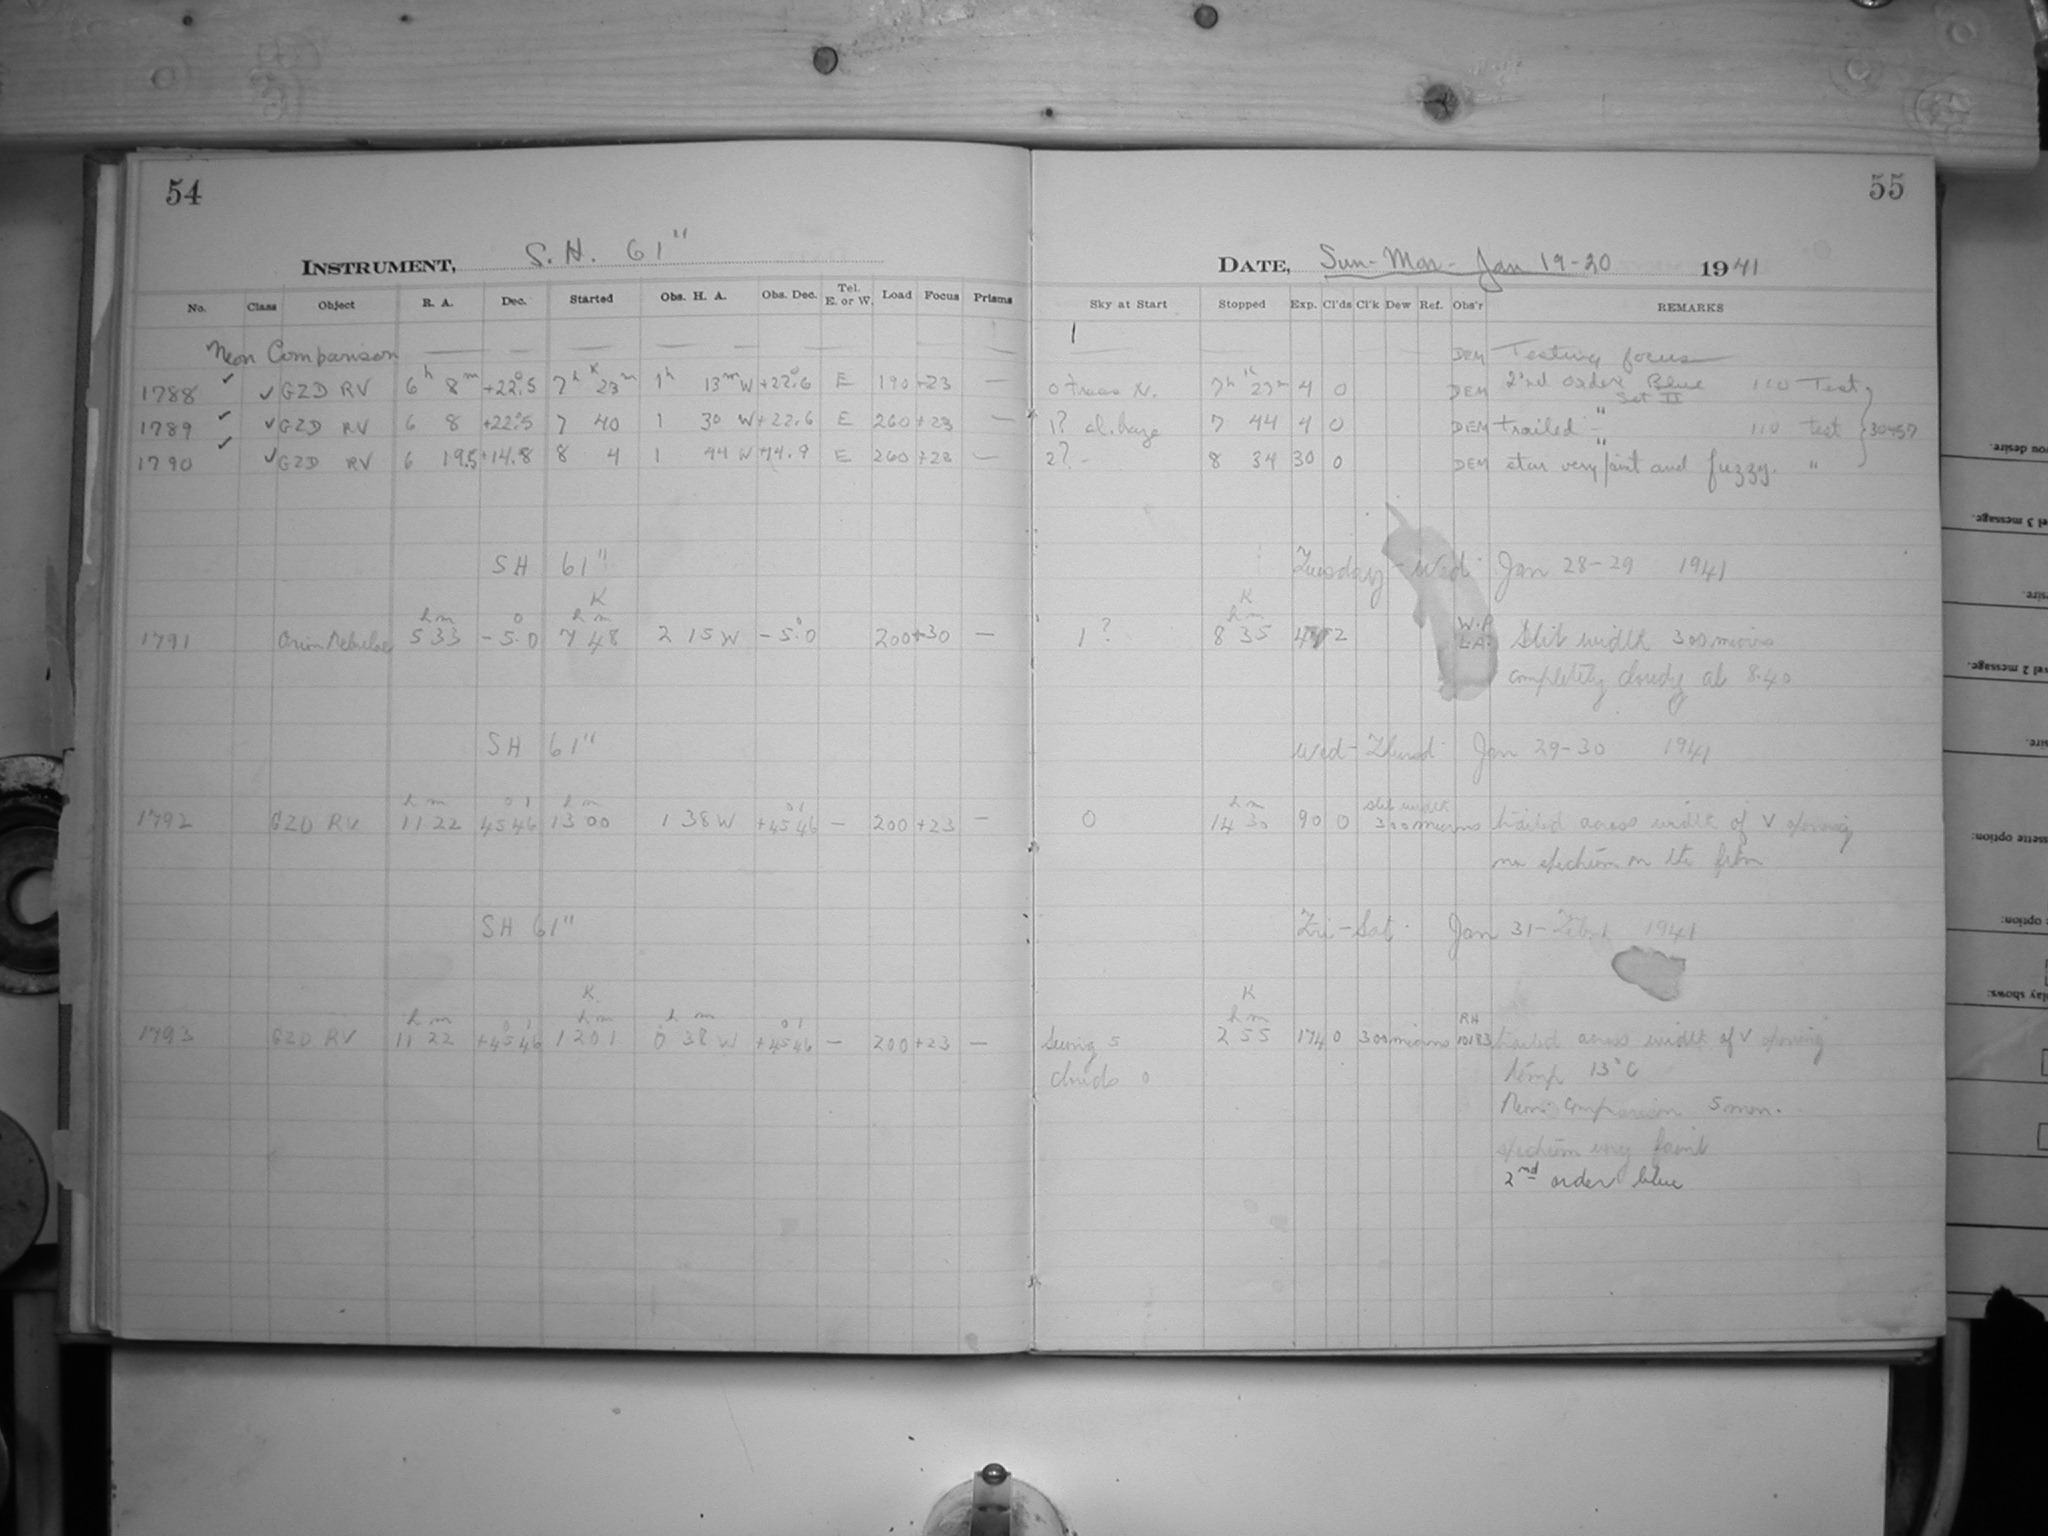 54
INSTRUMENT, S. H. 61"
No. Class Object R. A. Dec. Started Obs. H. A. Obs. Dec. Tel. E. or W. Load Focus Prisms
Neon Comparison — — — — — —
1788 ✓ ✓ GZD RV 6h 8m +22°.5 7h K 23m 1h 13m W +22°.6 E 190 +23 —
1789 ✓ ✓ GZD RV 6 8 +22°.5 7 40 1 30 W +22.6 E 260 +23 —
1790 ✓ ✓ GZD RV 6 19.5 +14.8 8 4 1 44 W +14.9 E 260 +23 —
SH 61"
K
h m o h m
1791 Orion Nebulae 5 33 - 5.0 7 48 2 15 W - 5°.0 200 +30 —
SH 61"
h m o ' h m o '
1792 GZD RV 11 22 45 46 13 00 1 38 W +45 46 — 200 +23 —
SH 61"
K
h m o ' h m h m o '
1793 GZD RV 11 22 +45 46 12 01 0 38 W +45 46 — 200 +23 —
55
DATE, Sun-Mon- Jan 19-20 1941
Sky at Start Stopped Exp. Cl'ds Cl'k Dew Ref. Obs'r REMARKS
1
DEM Testing focus
0 N. 7h K 27m 4 0 DEM 2nd order Blue 110 Test
Set II
1? 7 44 4 0 DEM trailed - " 110 test 30457
2? - 8 34 30 0 DEM star very faint and fuzzy. "
Tuesday - Wed. Jan 28-29 1941
K
h m
1? 8 35 2 W.P. L.A. Slit width 300 microns
completely cloudy at 8.40
Wed - Thurs. Jan 29-30 1941
h m slit width
0 14 30 90 0 300 microns trailed across width of V opening
no spectrum on the film
Fri - Sat. Jan 31 - Feb. 1 1941
K
h m RH
Seeing 5 2 55 174 0 300 microns 10183 trailed across width of V opening
clouds 0 temp 13°C
Neon Comparison 5 min.
spectrum very faint
2nd order blue